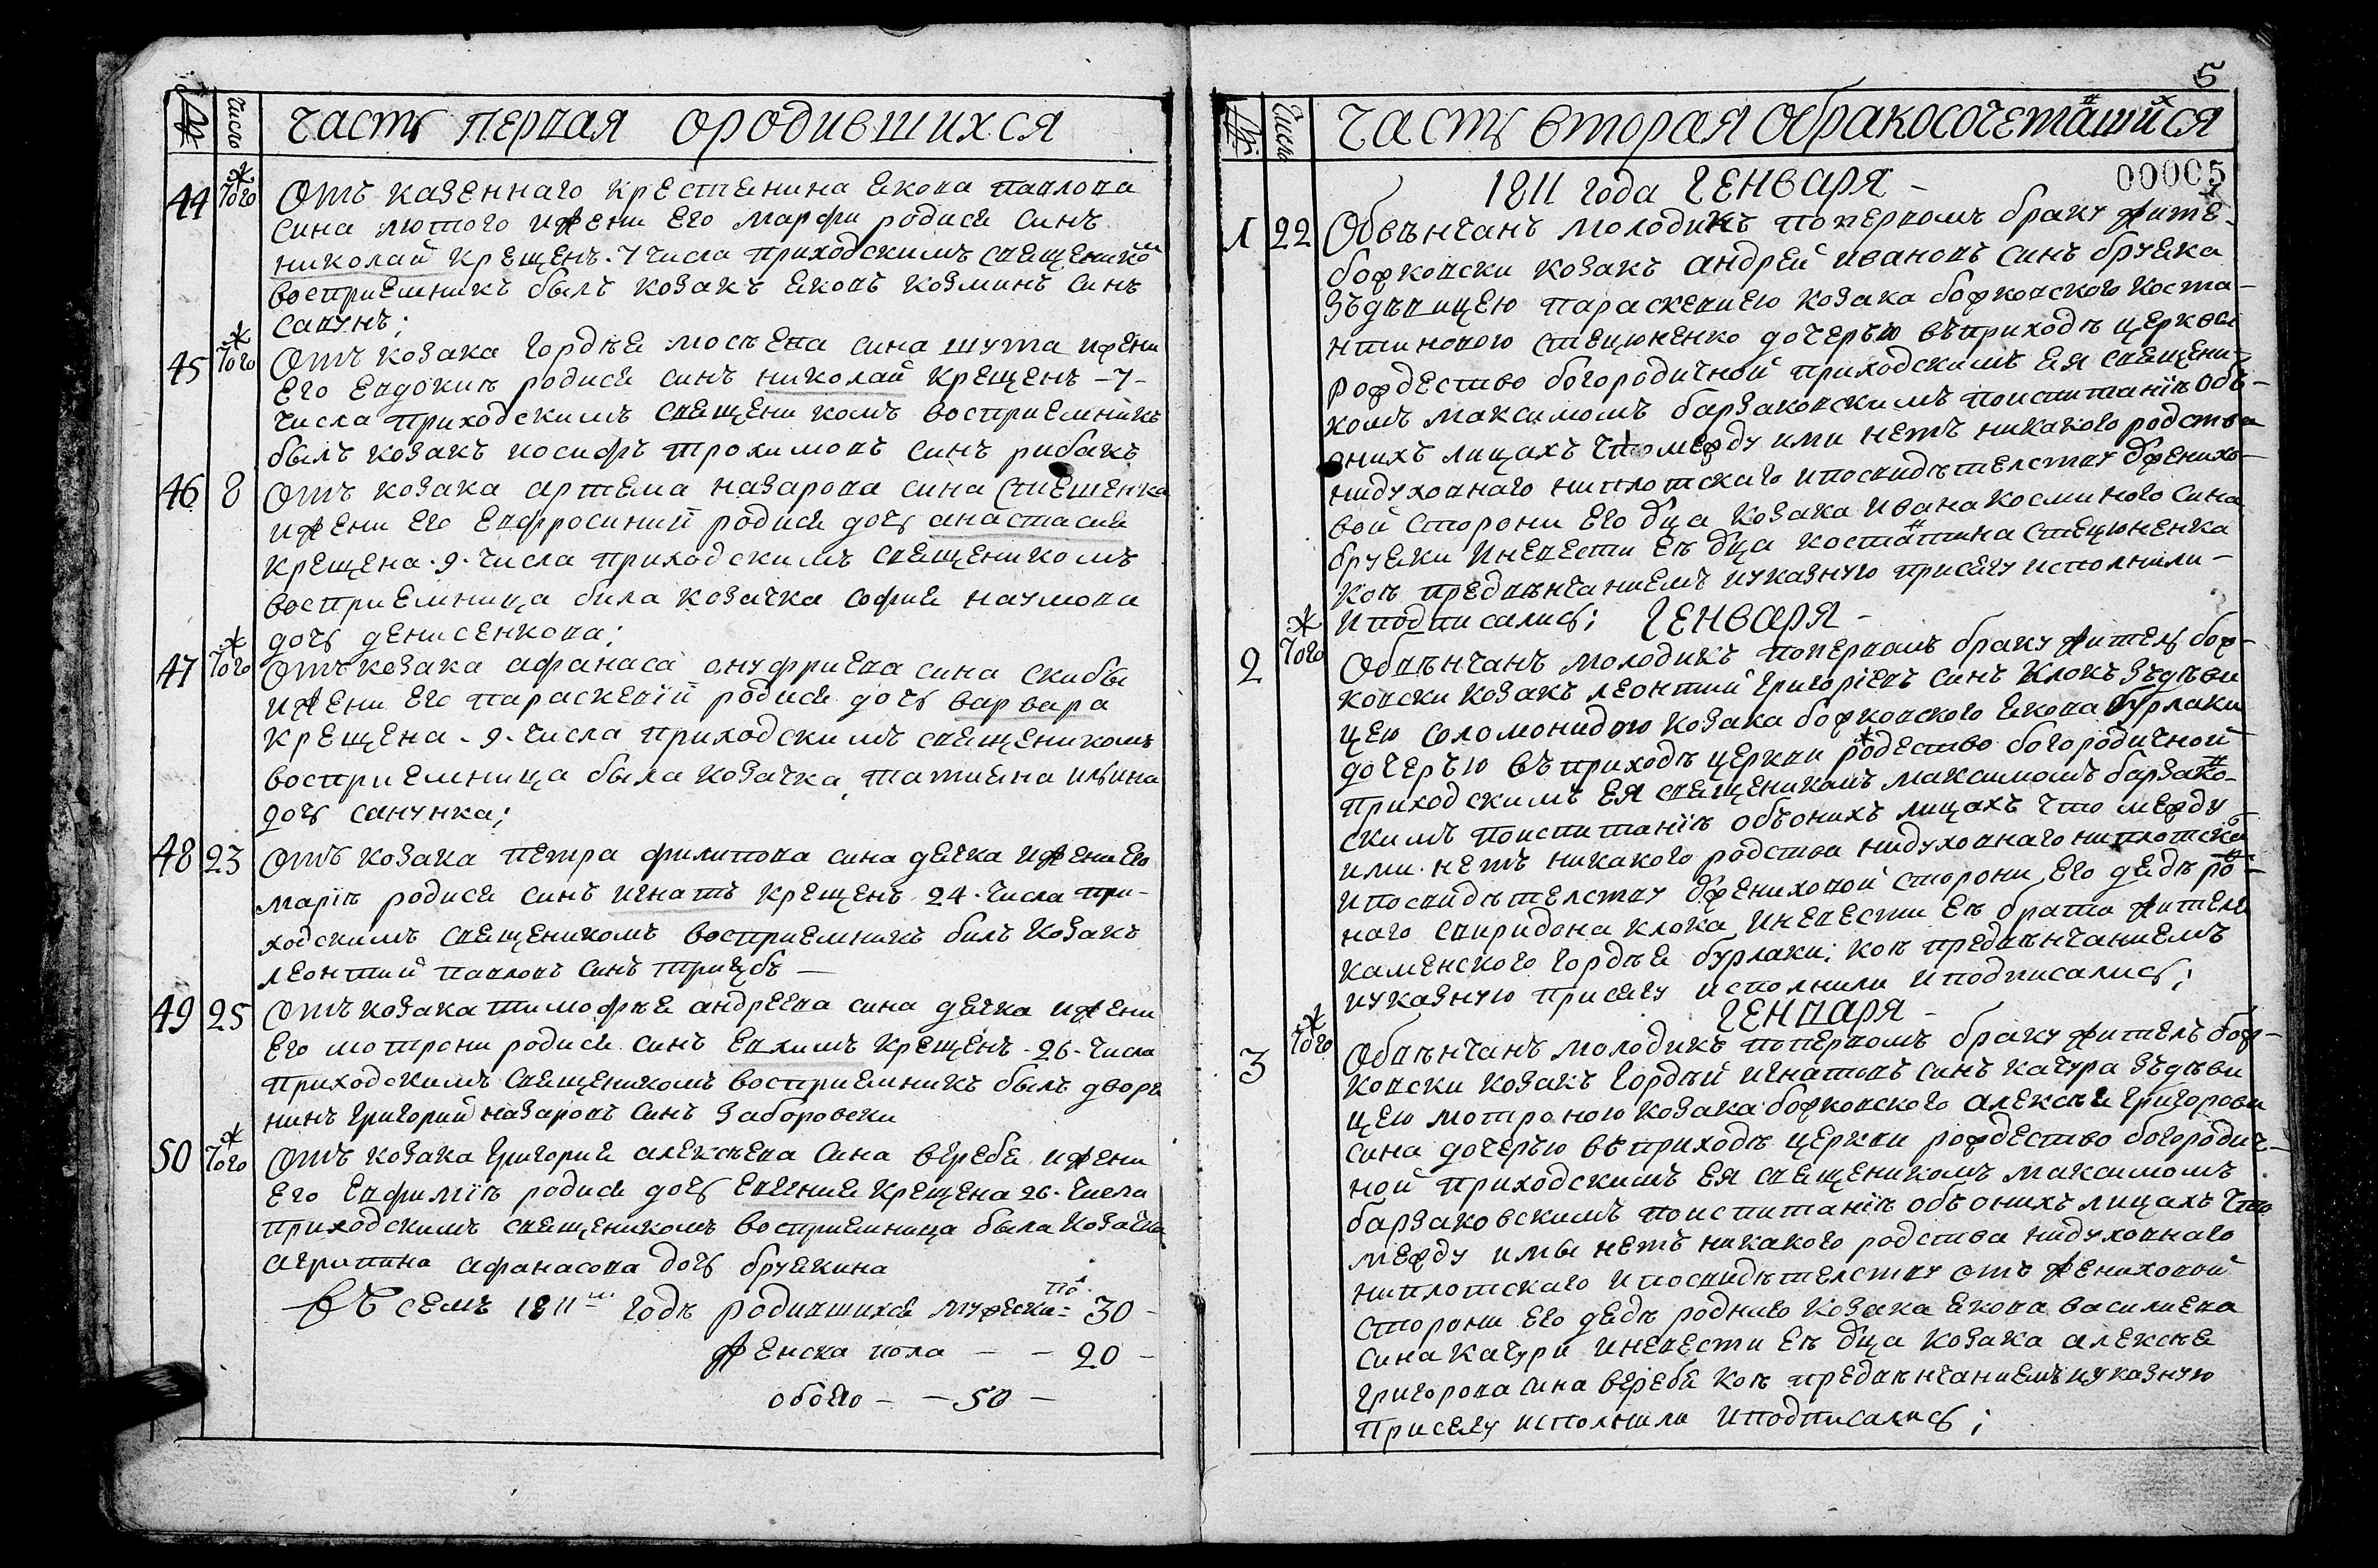 № Число Часть первая ородившихся
44 Того Отъ казеннаго крестянина якова павлова
сина лютого ижени его марфи родися синъ
николай крещенъ. 7 числа приходскимъ священикомъ
восприемникъ былъ козакъ яковъ козминъ синъ
савунъ;
45 Того Отъ козака гордѣя мосѣева сина шута ижени
его евдокии родися синъ николай крещенъ - 7 -
числа приходскимъ священикомъ восприемникъ
былъ козакъ иосифъ трохимовъ синъ рибакъ
46 8 Отъ козака артема назарова сина
ижени его евфросиний родися дочь анастасия
крещена. 9. числа приходскимъ священикомъ
восприемница била козачка софия наумова
дочь денисенкова;
47 Того Отъ козака афанаса онуфриева сина скибы
ижени его параскевий родися дочь варвара
крещена. 9. числа приходскимъ священикомъ
восприемница была козачка татияна илина
дочь санунка;
48 23 Отъ козака петра филипова сина дячка ижени его
маріѣ родися синъ игнатъ крещенъ 24. числа при-
ходскимъ священикомъ восприемникъ билъ козакъ
леонтий павловъ синъ тригубъ —
49 25 Отъ козака тимофѣя андреева сина дячка ижени
его мотрони родися синъ евхимъ крещенъ. 26. числа
приходскимъ священикомъ восприемникъ былъ дворя
нинъ григорий назаровъ синъ заборовски
50 Того Отъ козака григория алексѣева сина веребя ижени
его евфиміѣ родися дочь евгения крещена 26. числа
приходскимъ священикомъ восприемница была козачка
агрипина афанасова дочь бруякина
Въ семъ 1811мъ годѣ родившихся мужеска по: 30 -
женска пола - - 20 -
обоего - - 50 -
5
№ Число Часть вторая обракосочеташихся
00005
1811 года Генваря -
1 22 Обвѣнчанъ молодикъ поперъвомъ браку жите-
божковски козакъ андрей ивановъ синъ бруяка
зъдѣвицею параскевиею козака божковского коста-
нтинового стецюненко дочерью въприходѣ церкви
рождество богородичной приходскимъ ея священи-
комъ максимомъ барзаковскимъ поиспитаніѣ объ-
онихъ лицахъ чтомежду ими нетъ никакого родства
нидуховнаго ниплотскаго ипосвидѣтелству жених-
вой сторони его оца козака ивана косминого сина
бруяки иневести еѣ оца костатина стецюненка
коѣ предвѣнчаниемъ иуказную присягу исполнили -
иподписались; Генваря -
2 Того Обвѣнчанъ молодикъ поперъвомъ браку житель бож-
ковски козакъ леонтий григоріевъ синъ клокъ зъдѣви
цею соломонидою козака божковского якова бурлаки
дочерью въприходѣ церкви родество богородичной
приходскимъ ея священикомъ максимомъ барзако-
скимъ поиспитаніѣ объонихъ лицахъ что между
ими. нетъ никакого родства нидуховнаго ниплотска
ипосвидѣтелству жениховой сторони его дядѣ ро-
наго свиридона клока иневести еѣ брата жителя
каменского гордѣя бурлаки; коѣ предвѣнчаниемъ
иуказную присягу исполнили иподписались;
Генваря -
3 Того Обвѣнчанъ молодикъ поперъвомъ браку жителъ бож-
ковски козакъ гордѣй игнатовъ синъ качура зъдѣви
цею мотроною козака божковского алексѣя григорова
сина дочерью въприходѣ церкви рождество богородич-
ной приходскимъ ея священикомъ максимомъ
барзаковскимъ поиспитаніѣ объонихъ лицахъ что
между имы нетъ никакого родства нидуховнаго
ниплотскаго ипосвидѣтелству отъ жениховой
сторони его дядѣ родного козака якова василиева
сина качури иневести еѣ оца козака алексѣя
григорова сина веребя коѣ предвѣнчаниемъ иуказную
присягу исполнили иподписались;